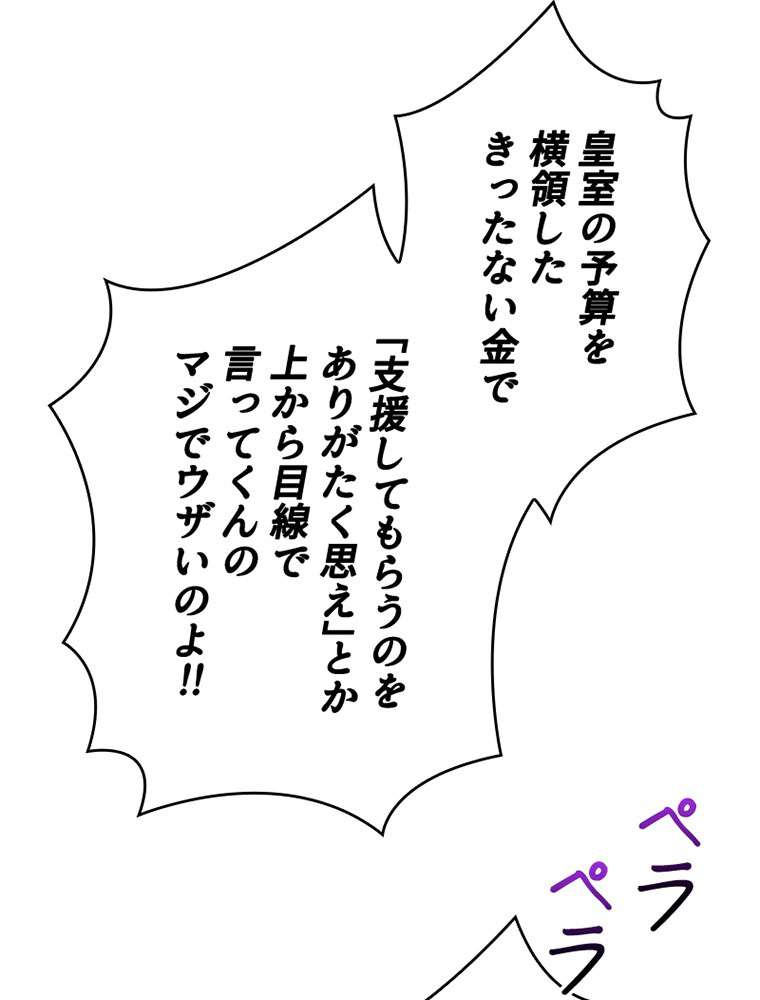 皇室の予算を
横領した
きったない金で
「支援してもらうのを
ありがたく思え」とか
上から目線で
言ってくんの
マジでウザいのよ!!
ペラ
ペラ